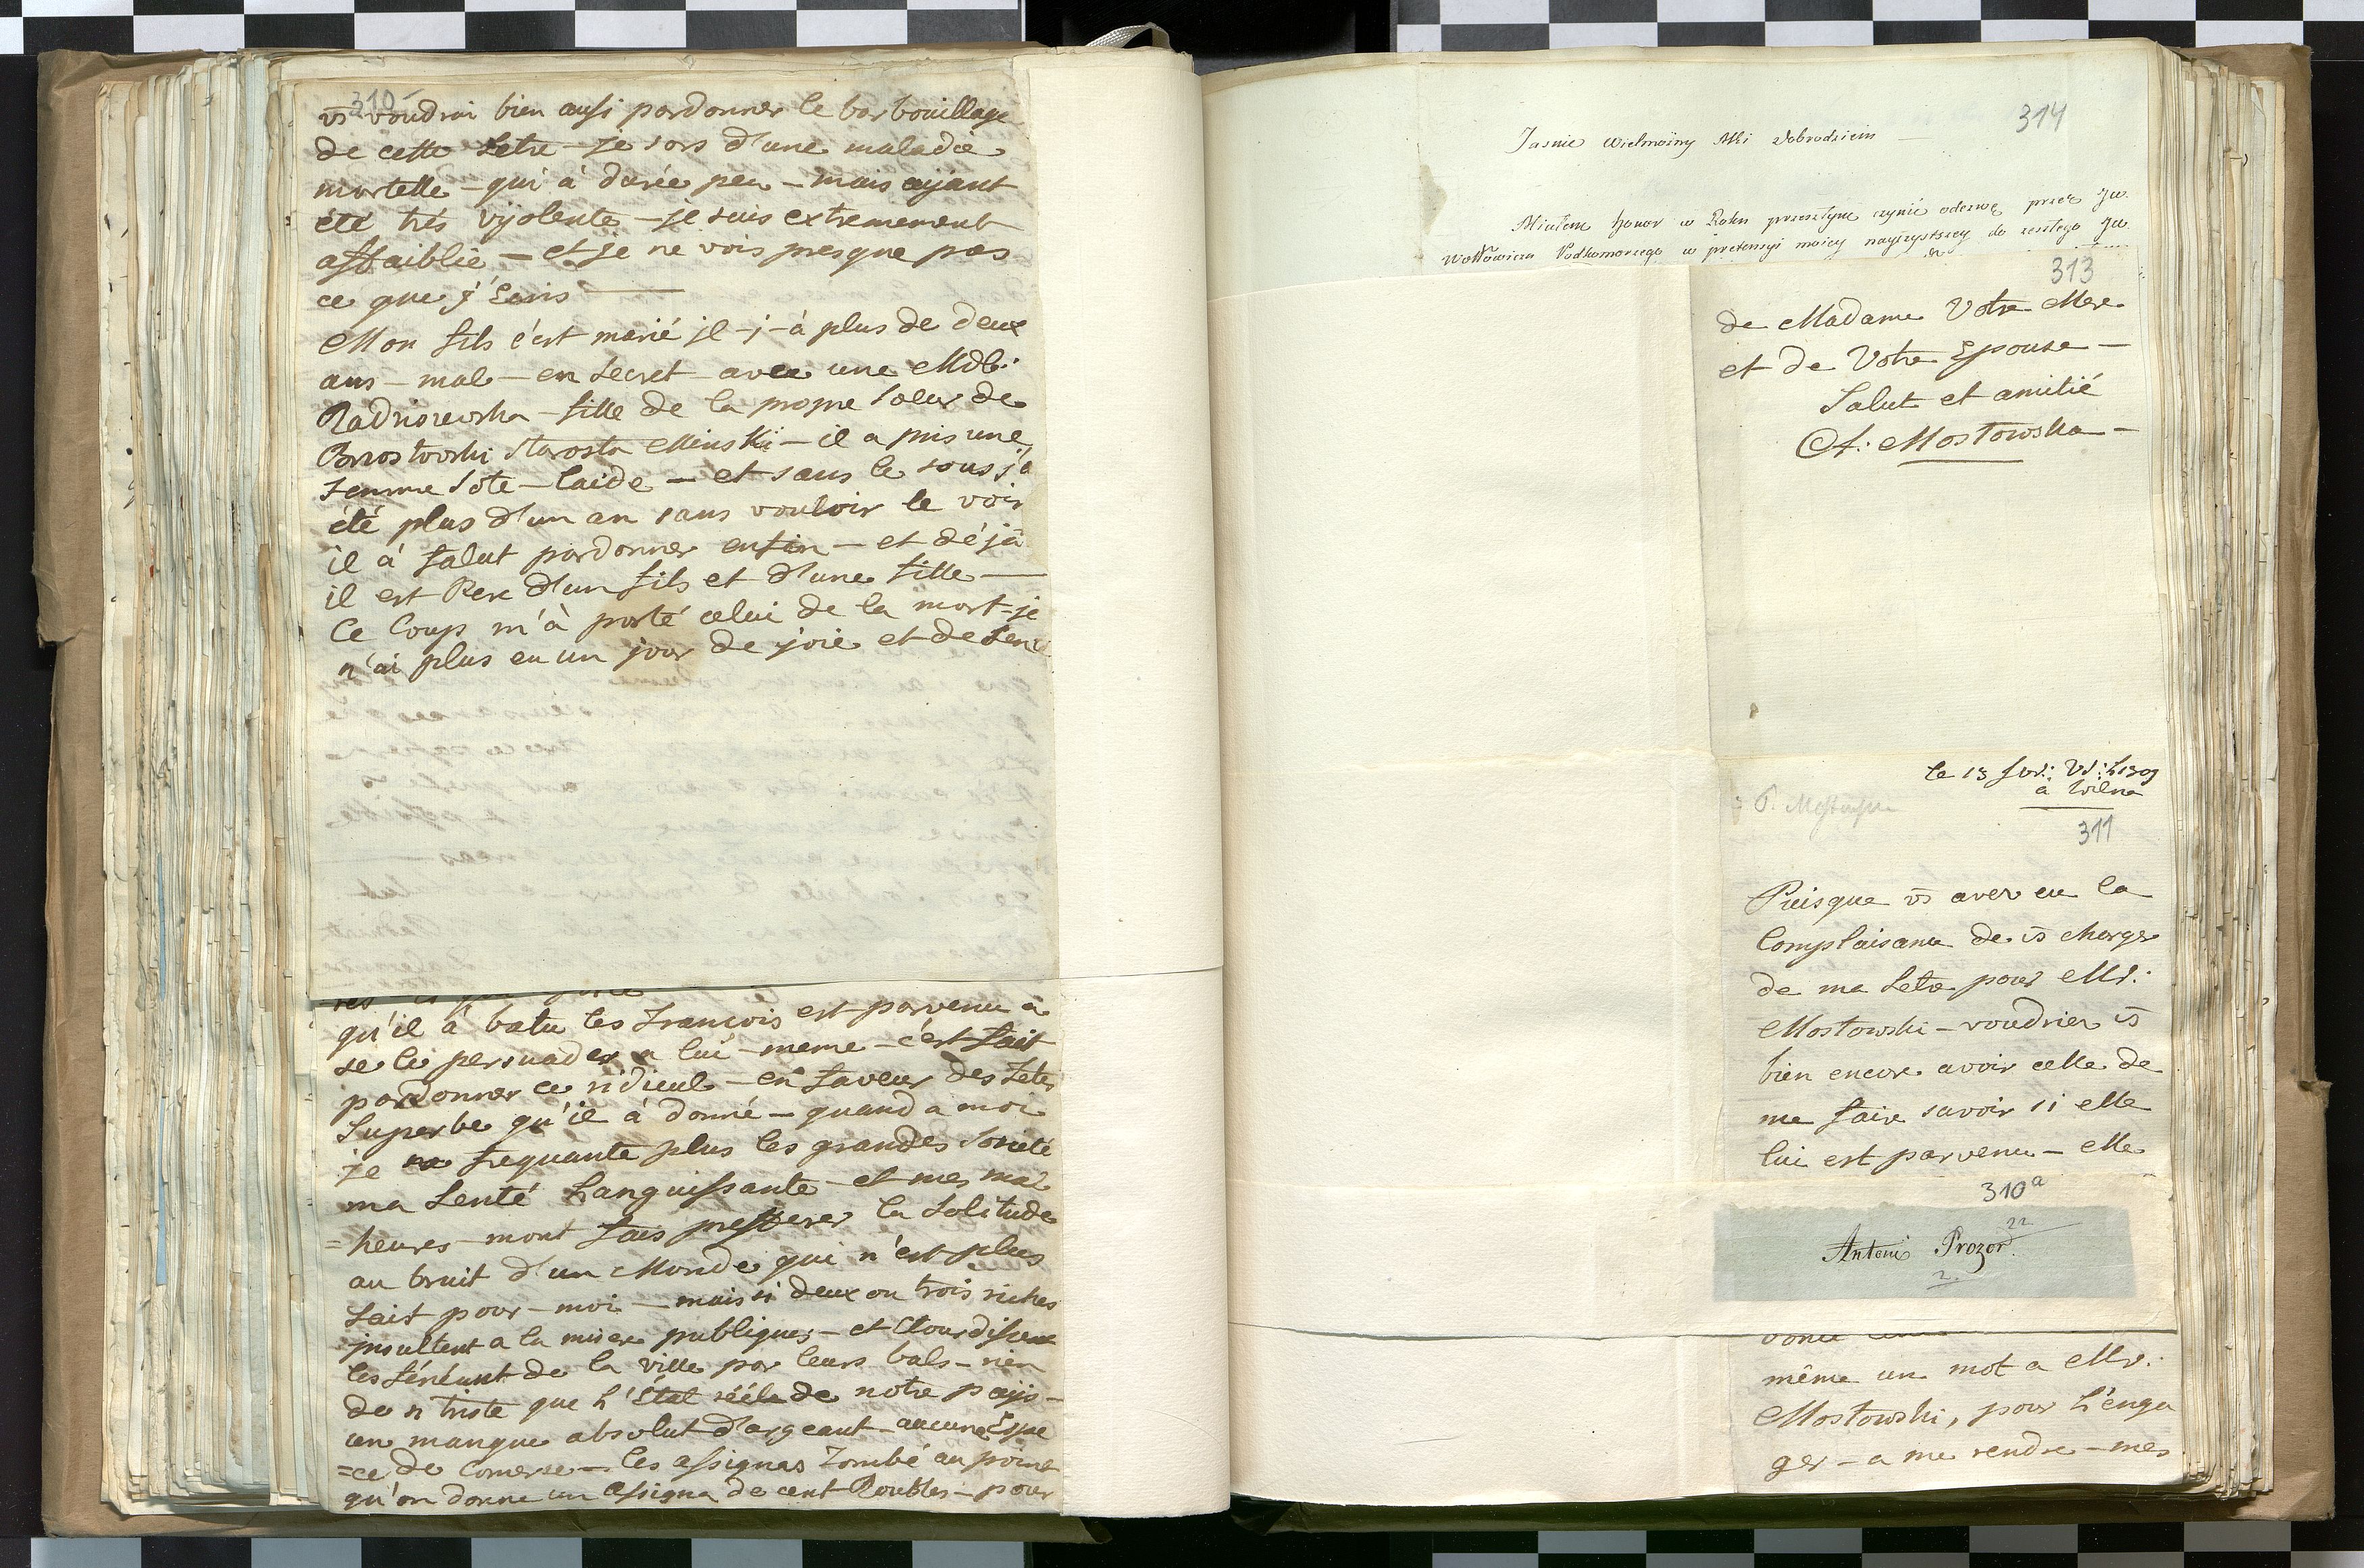 310
vs voudrai bien ausi pardonner le barbouillage
de cette Letre – je sors d'une maladie
mortelle – qui à durée peu – mais aÿant
été trés vÿolente – je suis extremement
affaiblie – et je ne vois presque pas
ce que j'Ecris
Mon fils c'est marié il – j – à plus de deux
ans – mal – en Secret – avec une Mdle:
Radriszewska – fille de la propre Soeur de
Brzostowski Starosta Minski – il a pris une
femme Sote – laide – et sans le sous j'a
été plus d'un an sans vouloir le voir
il à falut pardonner enfin – et déjà
il est Pere d'un fils et d'une fille
Ce Coup m'à porté celui de la mort = je
n'ai plus eu un jour de joie et de Sen
qu'il à batu les François est parvenu a
se le persuader a lui – meme – c'est fait
pardonner ce ridicul – en faveur des fetes
Superbe qu'il à donné – quand a moi
je ne frequante plus les grandes Societé
ma Senté Languissante – et mes mal
= heures – mont fais prefferer la Solitude
au bruit d'un Monde qui n'est plus
fait pour – moi – mais si deux ou trois riches
insultent a la misere publiques – et Etourdissent
les fénéant de la ville par leurs bals – rien
de si triste que L'État réele de notre paÿs –
un manque absolut d'argeant – aucune Espe
= ce de Comerse – les assignas Tombé au point
qu'on donne un assigna de cent Roubles – pour
314
Jasnie Wielmożny Mci Dobrodzieiu
Miałem honor w Roku przeszłym czynić odezwę przez JW.
Wołłowicza Podkomorzego w pretensyi moiey nayczystszey do zeszłego JW.
313
de Madame Votre Mere
et de Votre Epouse –
Salut et amitié
A: Mostowska –
le 13 fvr:
a Wilna
311
Puisque vs avez eu la
Complaisance de vs charger
de ma Letre pour Mr:
Mostowski – voudriez vs
bien encore avoir celle de
me faire savoir si elle
lui est parvenu – elle
310a
22
Antoni Prozor.
2.
même un mot a Mr:
Mostowski, pour L'enga
ger – a me rendre – mes